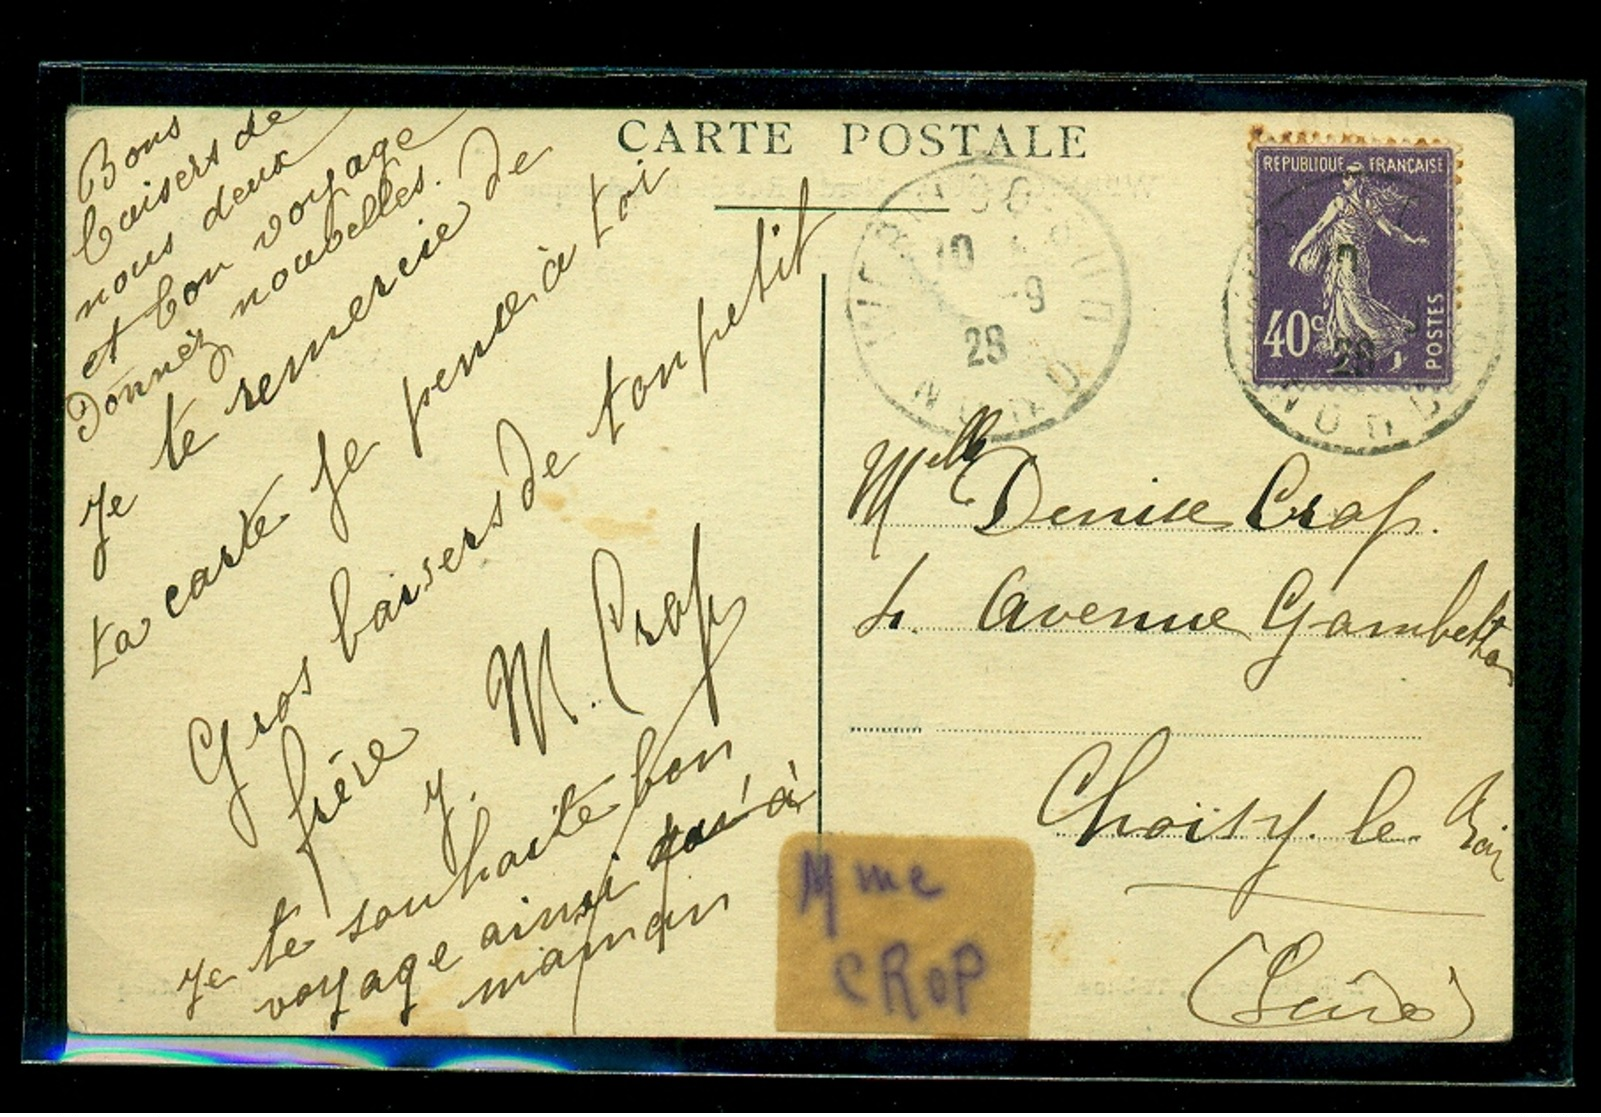 CARTE POSTALE
Bons
baisers de
nous deux
et bon voyage
Donnéz nouvelles.
Je te remercie de
ta carte je pense à toi
Gros baisers de ton petit
frère M. Crop
Je te souhaite bon
voyage ainsi qu'à
maman
REPUBLIQUE FRANÇAISE
40c
POSTES
10
-9
28
NORD
NORD
Melle Denise Crop.
4. Avenue Gambetta
Choisy. le. Roi
(Seine)
Mme
CROP